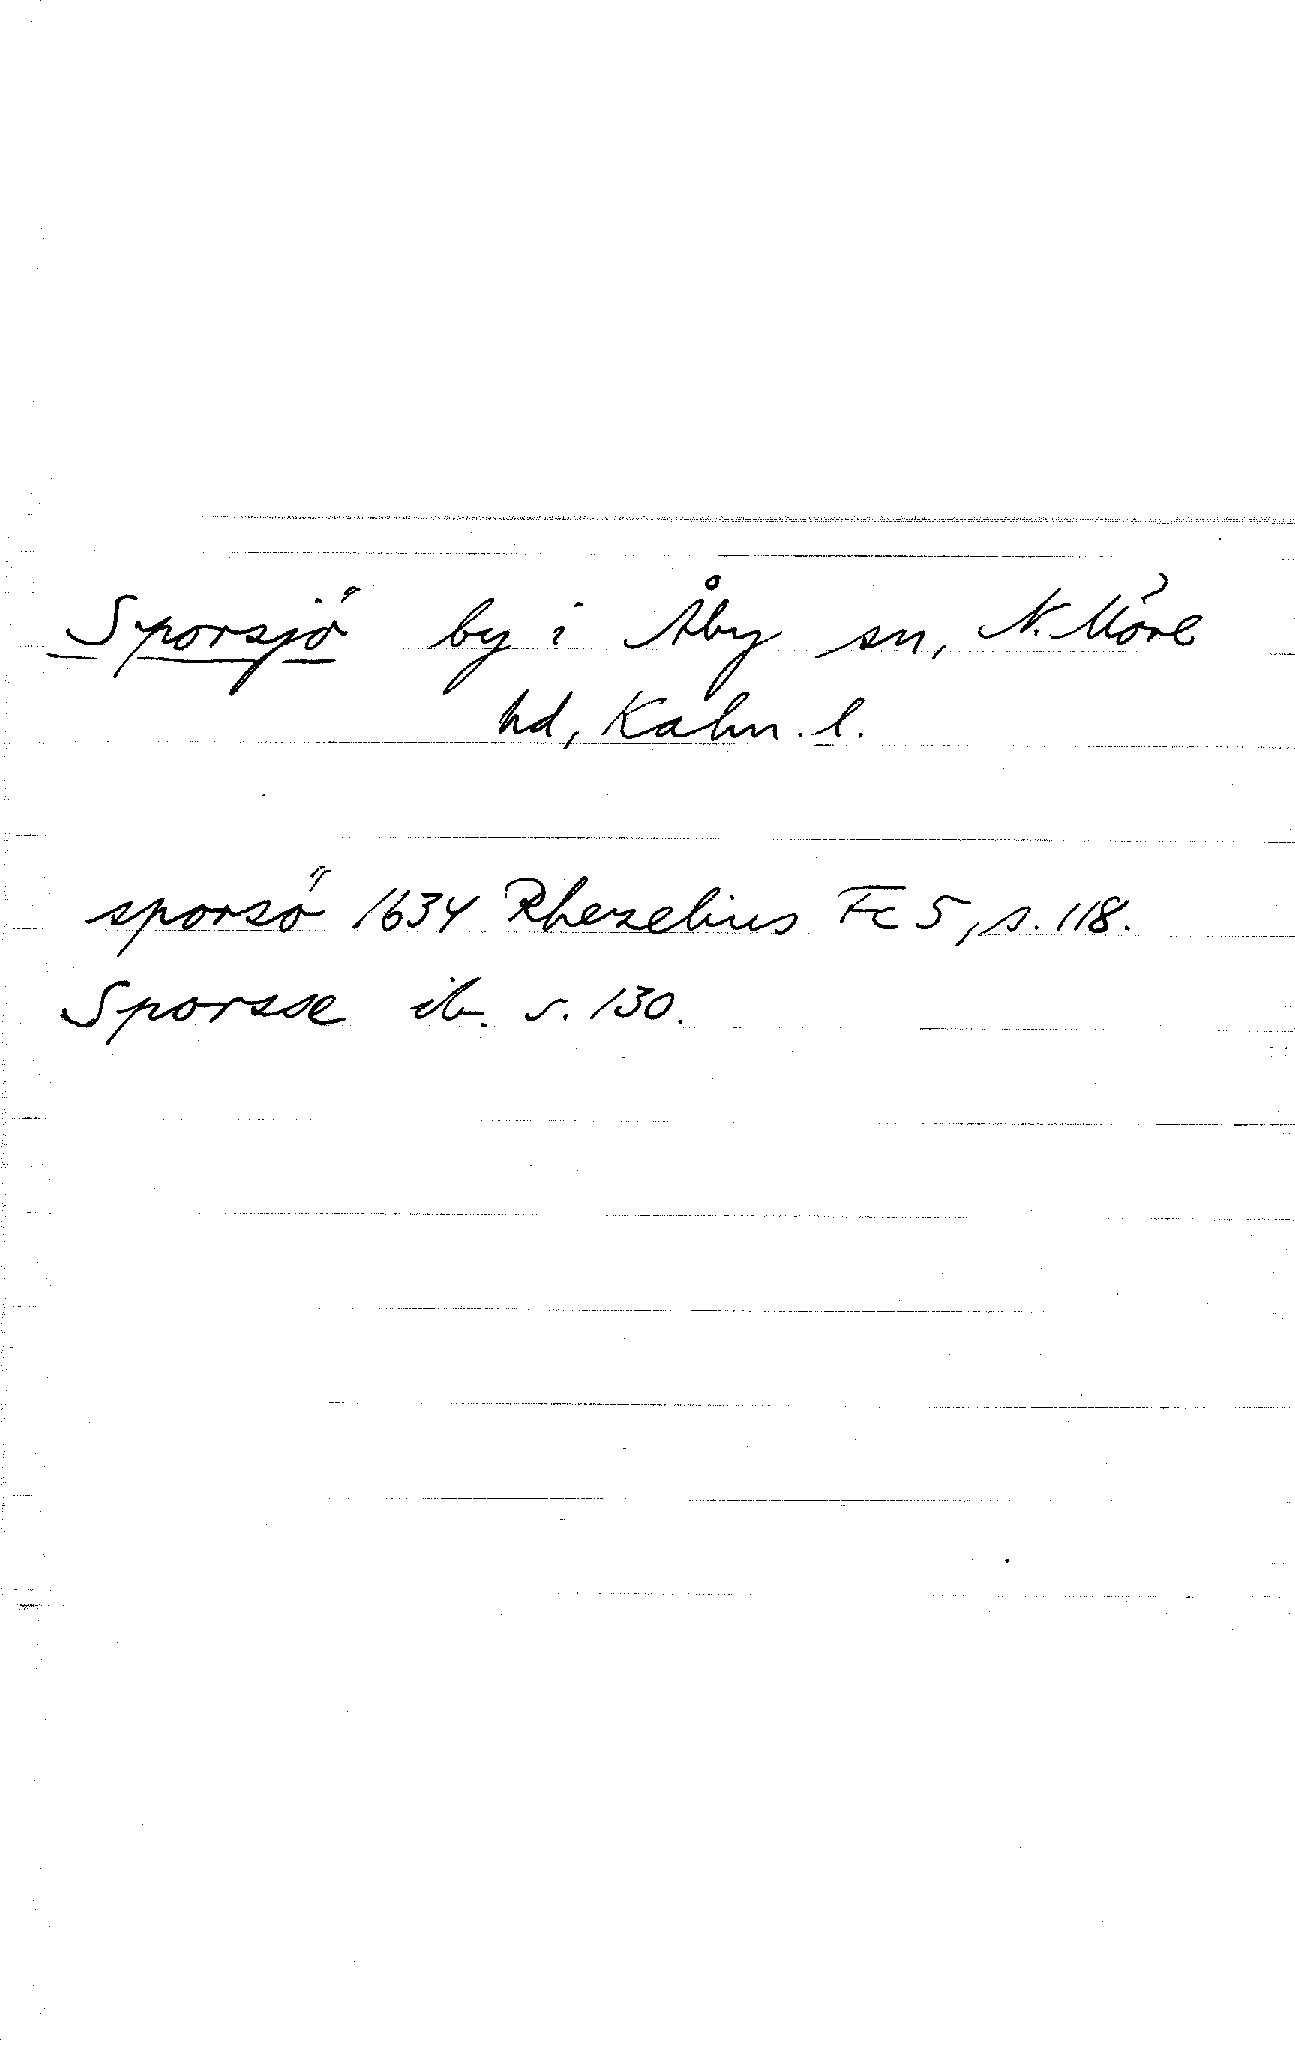 Sporsjö by i Åby sn, N. Möre
hd, Kalm. l.
sporsö 1634 Rhezelius Fc 5, s. 118.
Sporsse ib. s. 130.